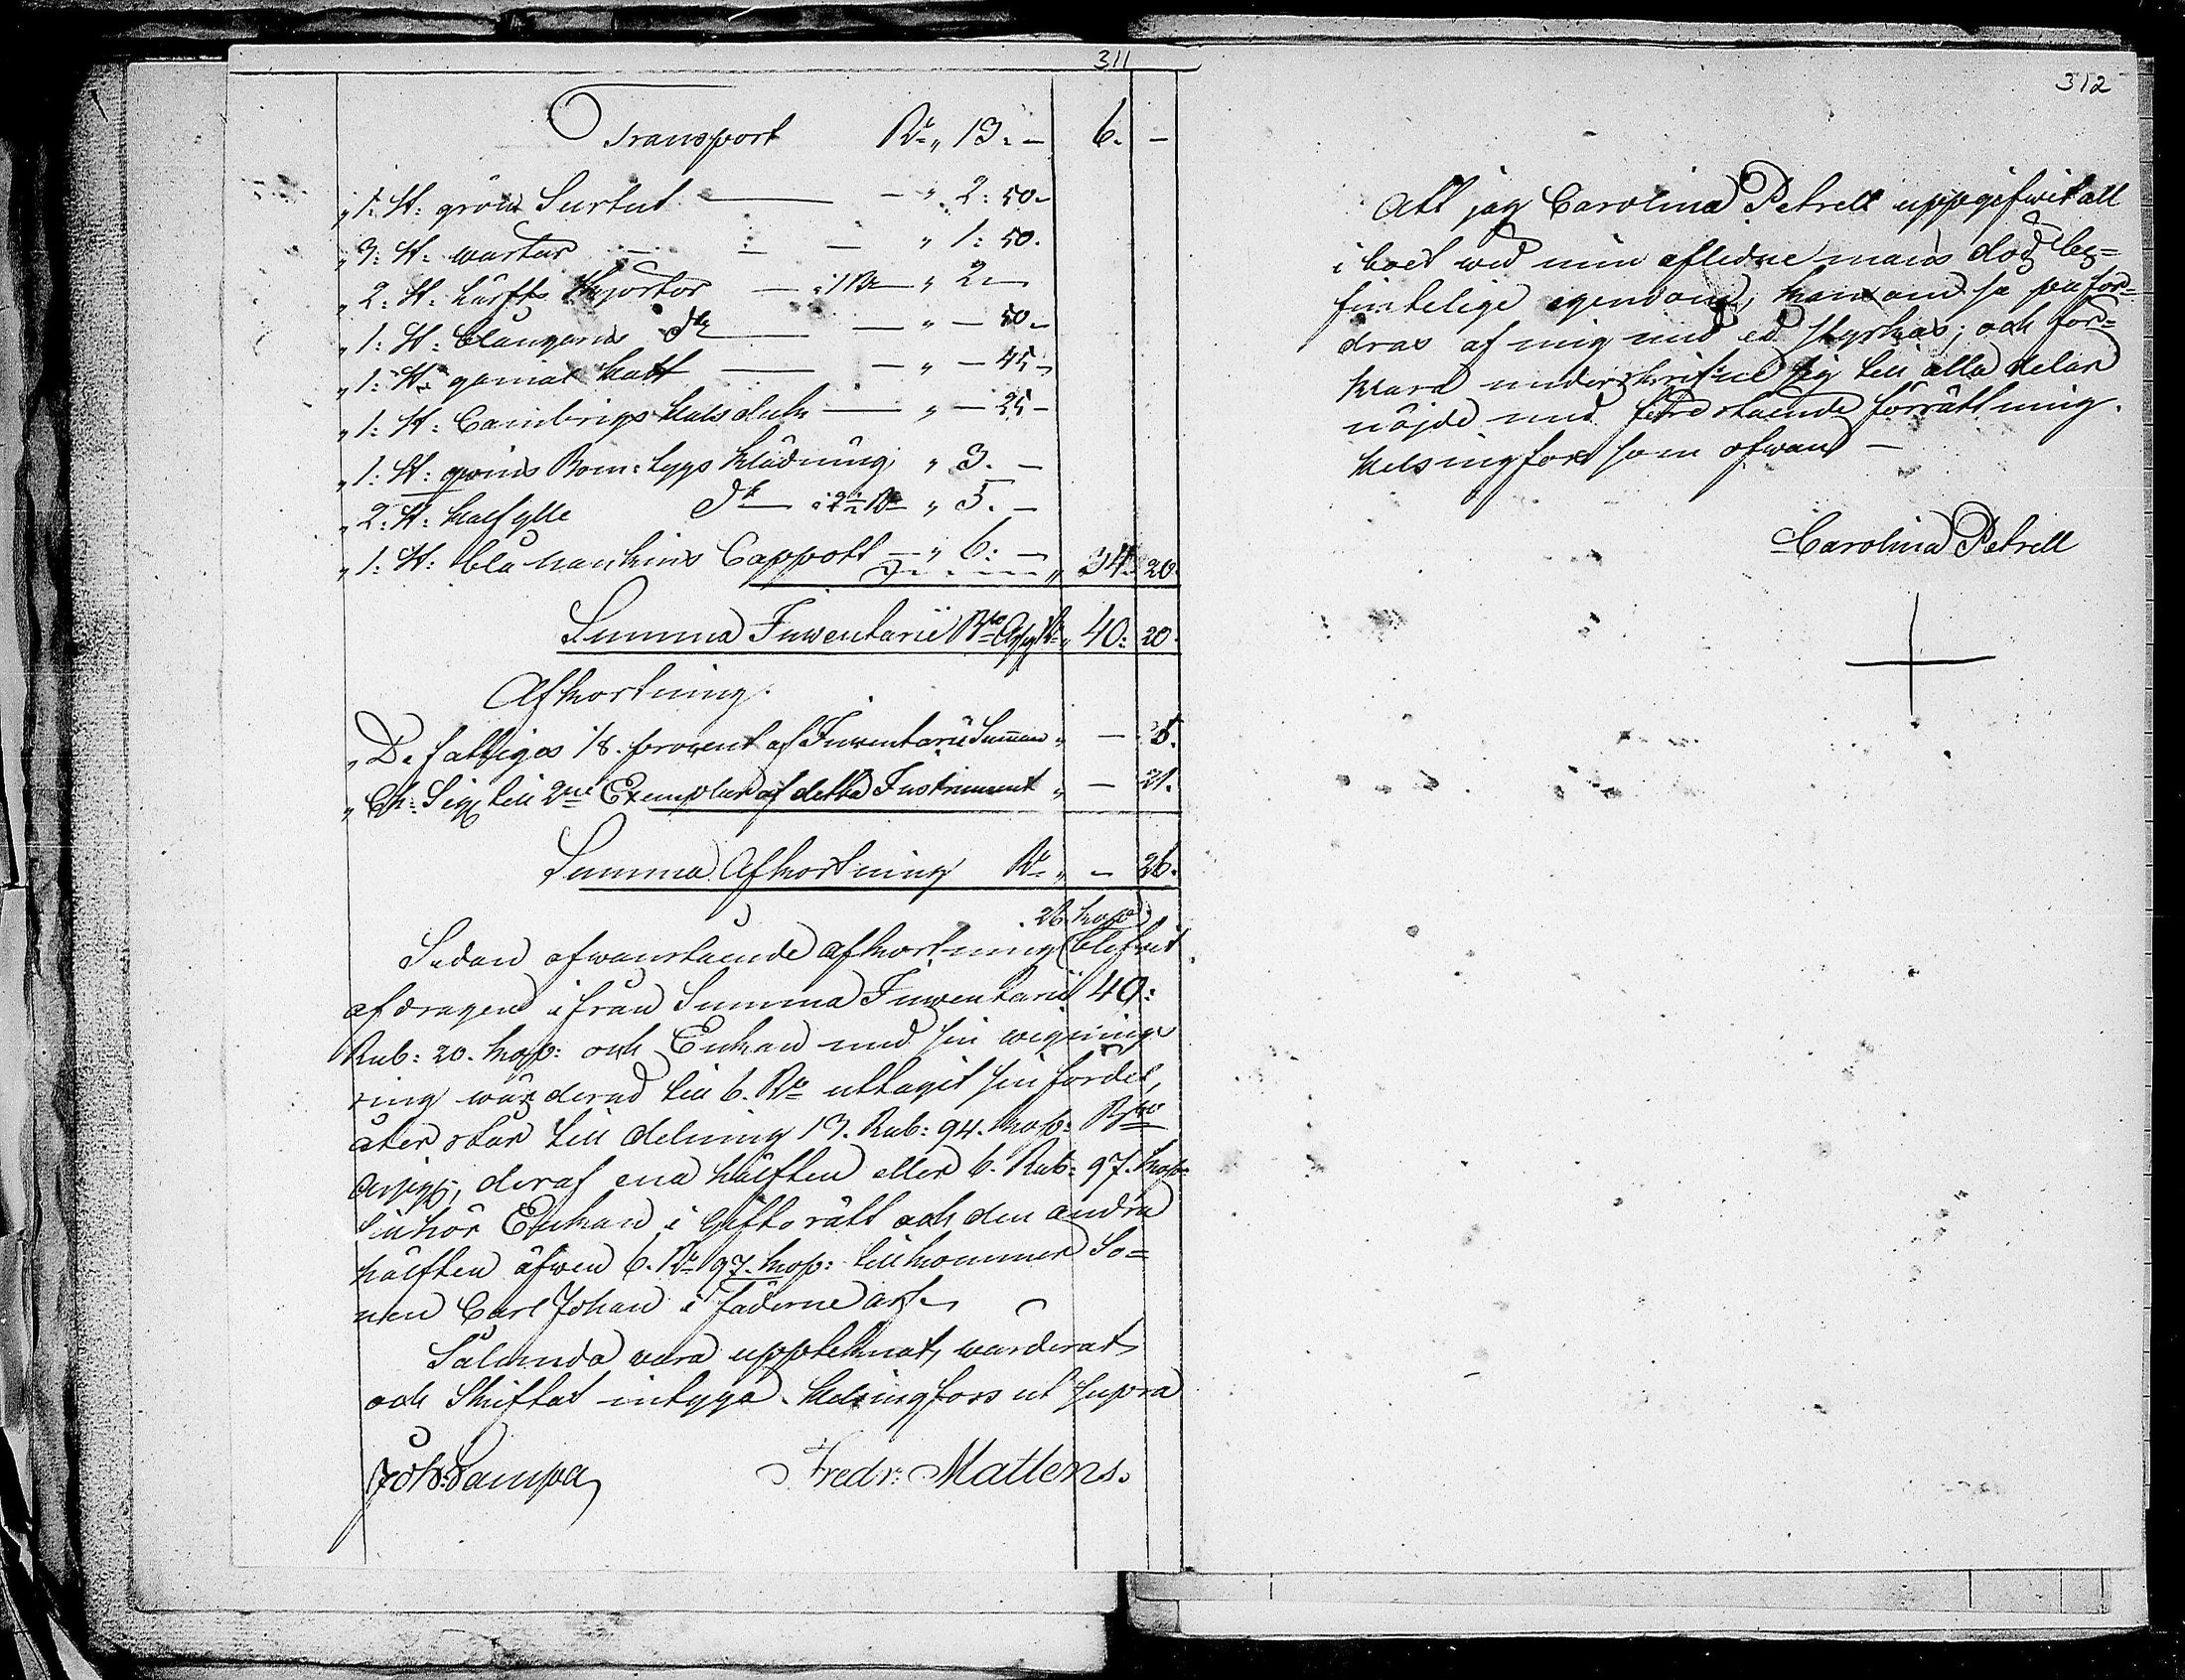 311
Transport R:„ 13: — 6. —
„ 1: St: grön Surtut — „ 2: 50 —
„ 3: St: wästar — — — „ 1: 50.
„ 2: St: lärfts skjortor — 1 R — „ 2 —
„ 1: St: blångarns d:o — — „ — 50 —
„ 1: St: gamal hatt — — „ — 45 —
„ 1: St: Cambrigs halsduk — „ — 25 —
„ 1: St: Bom: tygs klädning „ 3. —
„ 2: St: halfylle d:o — „ 5. —
„ 1: St: blå nankins Cappott — „ 6: — „ 34. 20.
Summa Inventarii B:co Assig: R: 40: 20.
Afkortning.
„ De fattigas 1/8. procent af Inventarii Summan „ — 5.
„ Ch: Sig: till 2:ne Exemplar af detta Instrument „ — 21.
Summa Afkortning R:„ — 26.
26 kop:
Sedan ofwanstaende afkortning blifvit
afdragen ifrån Summa Inventarii 40:
Rub: 20. kop: och Enkan med sin
ring wärderad till 6. R: uttagit sin fördel,
återstår till delning 13. Rub: 94. kop: B:co
Assig:, deraf ena hälften eller 6. Rub: 97. kop:
tillhör Enkan i Giftorätt och den andra
hälften äfwen 6. R: 97. kop: tillkommer So=
nen Carl Johan i fäderne arf —
Sålunda vara upptecknat, wärderat
och Skiftat intyga. Helsingfors ut supra
Joh: Sampa Fredr: Mattens.
312
Att jag Carolina Petrell uppgifwit all
i boet wid min aflidne mans död be=
fintelige egendom, kan om så påfor=
dras af mig med ed styrkas; och för=
klara till alla delar
nöjde med förestående förrättning.
Helsingfors som ofwan —
Carolina Petrell